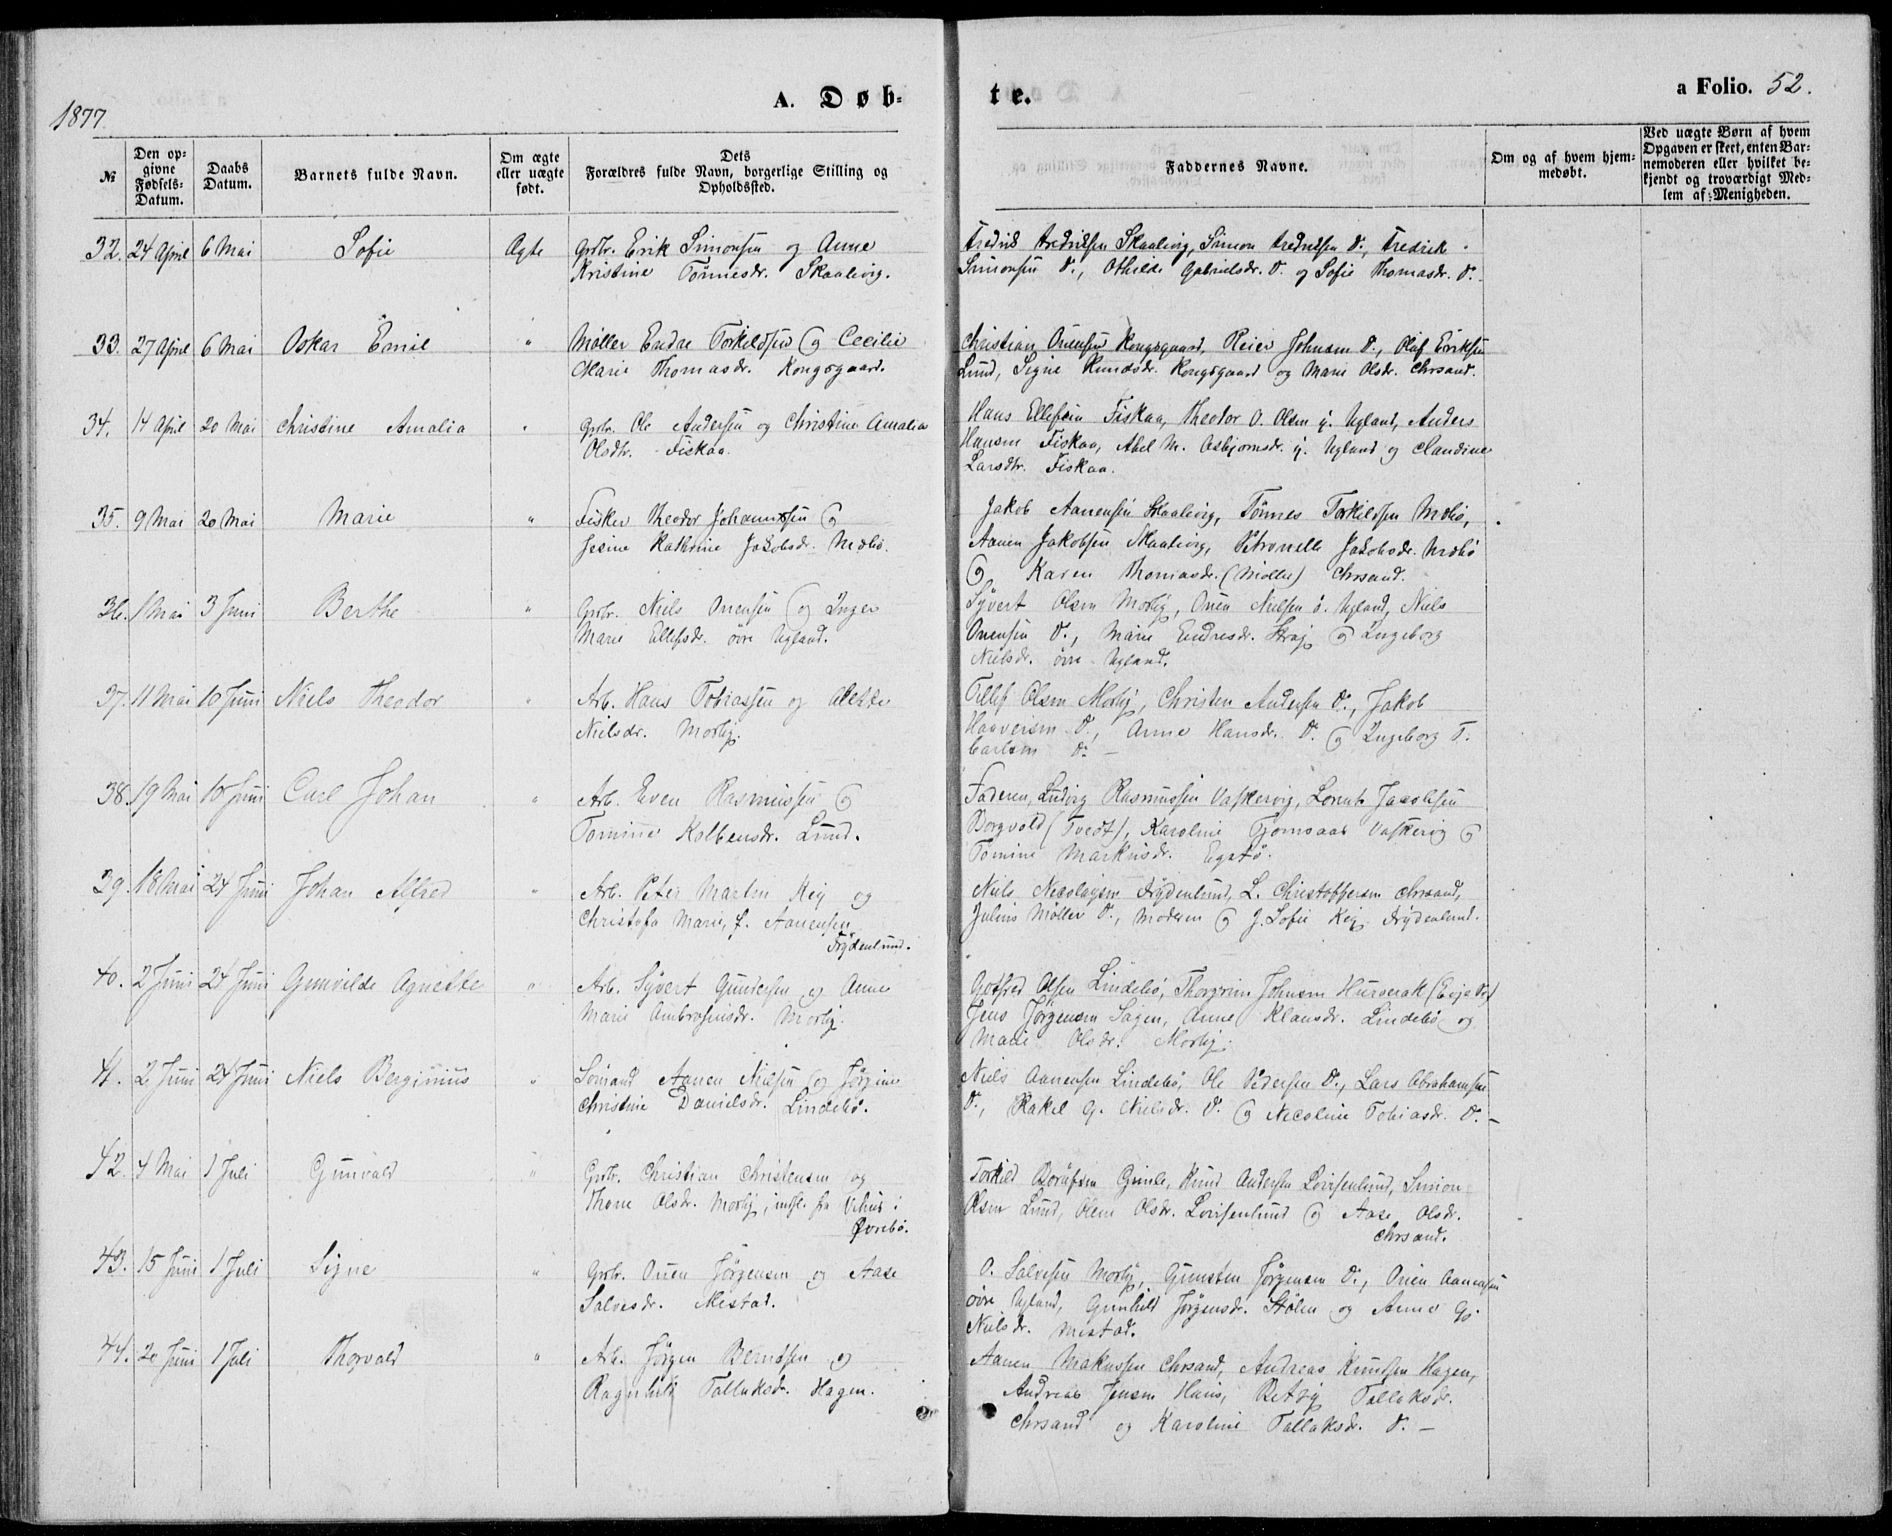 1877.
A. Døb-
te.
a Folio. 52.
№
Den op-
givne
Fødsels-
Datum.
Daabs
Datum.
Barnets fulde Navn.
Om ægte
eller uægte
født.
Dets
Forældres fulde Navn, borgerlige Stilling og
Opholdssted.
Faddernes Navne.
Om og af hvem hjem-
medøbt.
Ved uægte Børn af hvem
Opgaven er skeet, enten Bar-
nemoderen eller hvilket be-
kjendt og troværdigt Med-
lem af Menigheden.
32. 24 April 6 Mai Sofie Ægte Grbr. Erik Simonsen og Anne
Kristine Tønnesdr. Skaalevig.
Fredrik Fredriksen Skaalevig, Simon Fredriksen D., Fredrik
Simonsen D., Othilde Gabrielsdr. D. og Sofie Thomasdr. D.
33. 27 April 6 Mai Oskar Emil " Møller Endre Torkildsen og Cecilie
Marie Thomasdr. Kongsgaard.
Christian Onensen Kongsgaard, Reier Johnsen D., Olaf Eriksen
Lund, Signe Knudsdr. Kongsgaard og Marie Olsdr. Chrsand.
34. 14 April 20 Mai Christine Amalia " Grbr. Ole Andersen og Christine Amalia
Olsdtr. Fiskaa.
Hans Ellefsen Fiskaa, Theodor O. Olsen y. Ugland, Anders
Hansen Fiskaa, Abel M. Asbjørnsdr. y. Ugland og Claudine
Larsdtr. Fiskaa.
35. 9 Mai 20 Mai Marie " Fisker Theodor Johannesen og
Jesine Kathrine Jakobsdr. Mæbø.
Jakob Aanensen Skaalevig, Tønnes Torkildsen Mæbø,
Aanen Jakobsen Skaalevig, Petronelle Jakobsdr. Mæbø
og Karen Thomasdr. (Møller) Chrsand.
36. 1 Mai 3 Juni Berthe " Grbr. Niels Onensen og Inger
Marie Ellefsdr. øvre Ugland.
Syvert Olsen Moslig, Onen Nielsen ø. Ugland, Niels
Onensen D., Marie Endresdr. Straj og Ingeborg
Nielsdr. øvre Ugland.
37. 11 Mai 10 Juni Niels Theodor " Arb. Hans Tobiassen og Alette
Nielsdr. Moslig.
Tellef Olsen Moslig, Christen Andersen D., Jakob
Haaversen D., Anne Hansdr. D. og Ingeborg T.
Carlsen D. —
38. 19 Mai 10 Juni Carl Johan " Arb. Even Rasmussen og
Tomine Kolbensdr. Lund.
Faderen, Ludvig Rasmussen Vaskevig, Lorents Jacobsen
Borgvold (Tvedt), Karoline Tjomsaas Vaskevig og
Tomine Markusdr. Egstø.
39. 18 Mai 24 Juni Johan Alfred " Arb. Peter Martin Keij og
Christofa Marie, f. Aanensen
Frydenlund.
Niels Nicolaysen Frydenlund, L. Christoffersen Chrsand,
Julius Møller D., Moderen og J. Sofie Keij Frydenlund.
40. 2 Juni 24 Juni Gunvilde Agnette " Arb. Syvert Gundersen og Anne
Marie Ambrosiusdr. Moslig.
Gotfred Olsen Lindebø, Thorgrim Johnsen Hurverak (Evje)
Jens Jørgensen Sagen, Anne Klausdr. Lindebø og
Marie Olsdr. Moslig.
41. 2 Juni 24 Juni Niels Berginius " Sømand Aanen Nielsen og Jørgine
Christine Danielsdr. Lindebø.
Niels Aanensen Lindebø, Ole Pedersen D., Lars Abrahamsen
D., Rakel G. Nielsdr. D. og Nicoline Tobiasdr. D. —
42. 4 Mai 1 Juli Gunvald " Grbr. Christian Christensen og
Thone Olsdr. Moslig, indfl. fra Vehus i
Øvrebø.
Torkild Børufsen Gimle, Knud Andersen Lovisenlund, Simon
Olsen Lund, Olene Olsdr. Lovisenlund og Aase Olsdr.
Chrsand.
43. 15 Juni 1 Juli Signe " Grbr. Onen Jørgensen og Aase
Salvesdr. Mestad.
O. Salvesen Moslig, Gunsten Jørgensen D., Onen Aanensen
øvre Ugland, Gunhild Jørgensdr. Stølen og Anne G.
Nielsdr. Mestad.
44. 20 Juni 1 Juli Thorvald " Arb. Jørgen Berndsen og
Ragnhild Tallaksdr. Hagen.
Aanen Makussen Chrsand, Andreas Knudsen Hagen,
Andreas Jensen Haus, Betsy Tallaksdr.
Chrsand og Karoline Tallaksdr. D. —